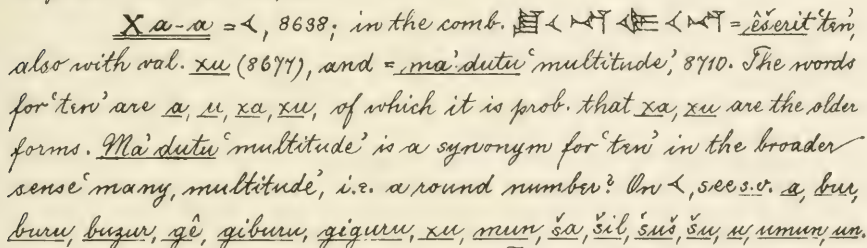 Xa-a = 𒌋, 8638; in the comb. = êšerit ‘ten’,
also with val. xu (8677), and = ma’dutu ‘multitude’, 8710. The words
for ‘ten’ are a, u, xa, xu, of which it is prob. that xa, xu are the older
forms. Ma’dutu ‘multitude’ is a synonym for ‘ten’ in the broader
sense ‘many, multitude’, i.e. a round number? On 𒌋, see s.v. a, bur,
buru, buzur, gê, giburu, giguru, xu, mun, ša, šil, šuš, šu, u, umun, un-